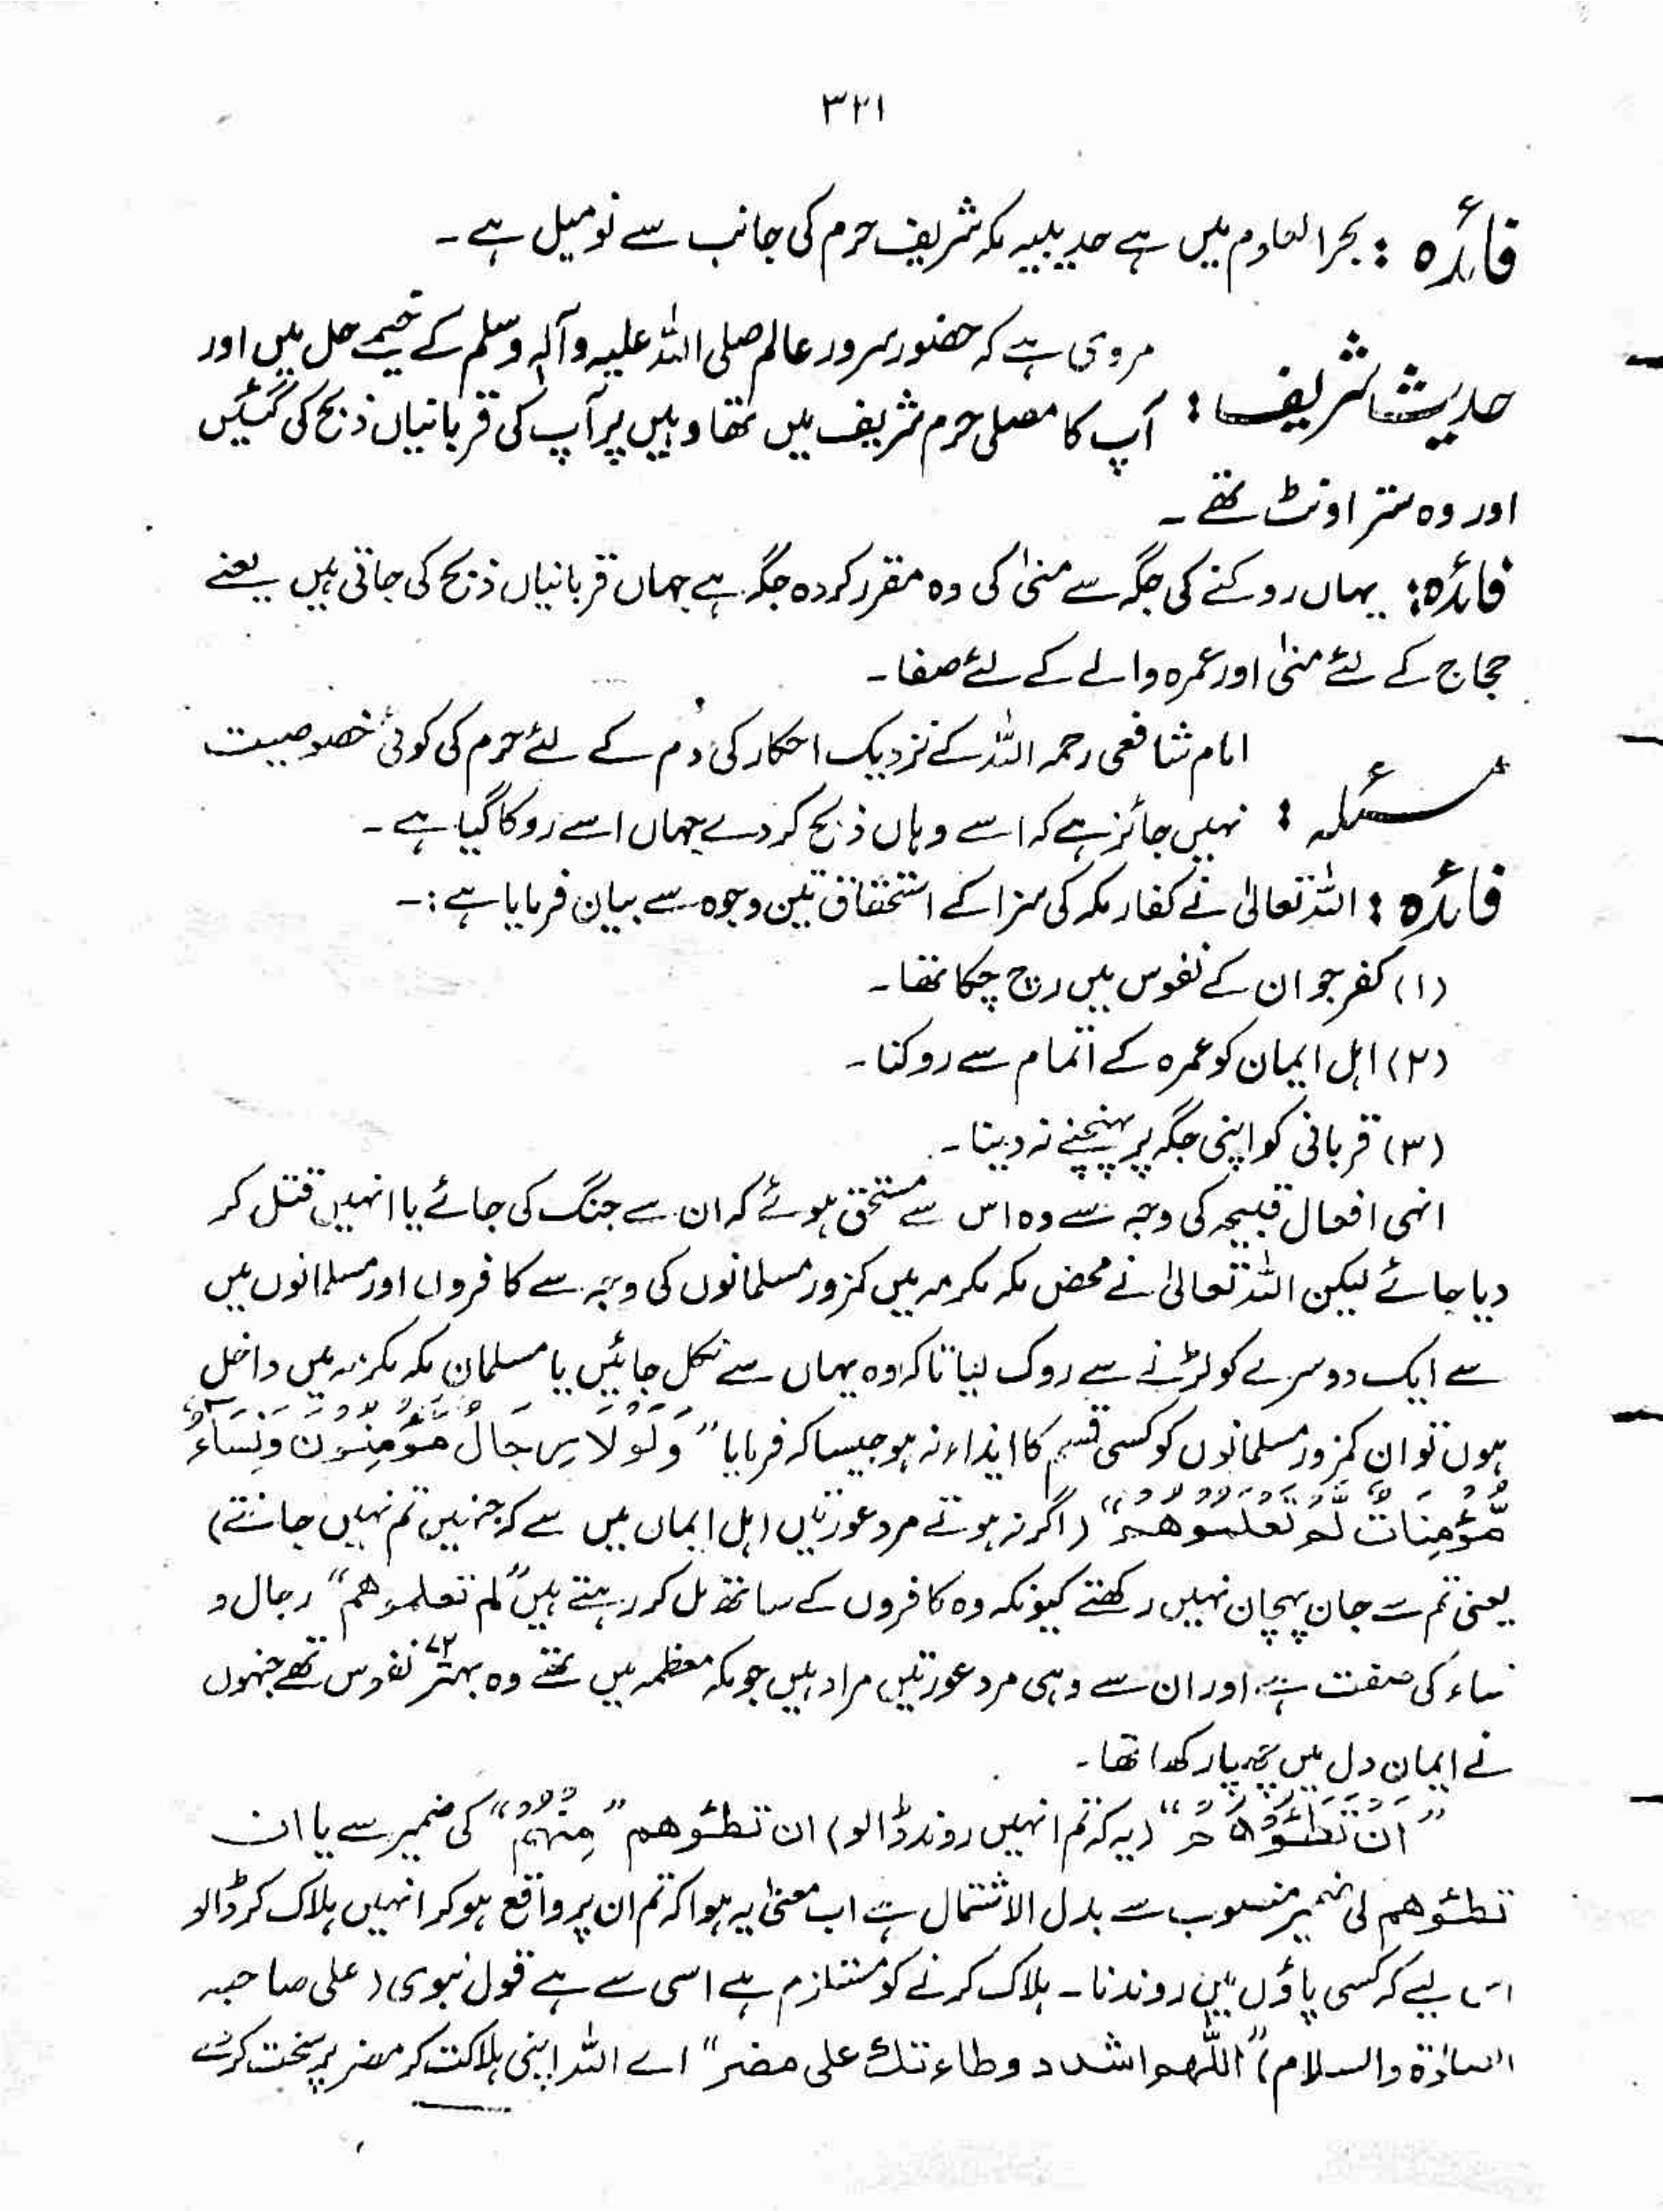 ۳۲۱
فائدہ : بحر العلوم میں ہے حدیبیہ مکہ شریف حرم کی جانب سے نو میل ہے۔
حدیث شریف : مروی ہے کہ حضور سرور عالم صلی اللہ علیہ وآلہٖ وسلم کے خیمے حل میں اور
آپ کا مصلی حرم شریف میں تھا وہیں پر آپ کی قربانیاں ذبح کی گئیں
اور وہ ستر اونٹ تھے۔
فائدہ: یہاں روکنے کی جگہ سے منیٰ کی وہ مقرر کردہ جگہ ہے جہاں قربانیاں ذبح کی جاتی ہیں یعنے
حجاج کے لئے منیٰ اور عمرہ والے کے لئے صفا۔
مسئلہ : امام شافعی رحمہ اللہ کے نزدیک احکار کی دم کے لئے حرم کی کوئی خصوصیت
نہیں جائز ہے کہ اسے وہاں ذبح کردے جہاں اسے روکا گیا ہے۔
فائدہ : اللہ تعالیٰ نے کفار مکہ کی سزا کے استحقاق تین وجوہ سے بیان فرمایا ہے :۔
(۱) کفر جو ان کے نفوس میں رچ چکا تھا۔
(۲) اہل ایمان کو عمرہ کے اتمام سے روکنا۔
(۳) قربانی کو اپنی جگہ پر پہنچنے نہ دینا۔
انہی افعال قبیحہ کی وجہ سے وہ اس سے مستحق ہوئے کہ ان سے جنگ کی جائے یا انہیں قتل کر
دیا جائے لیکن اللہ تعالیٰ نے محض مکہ مکرمہ میں کمزور مسلمانوں کی وجہ سے کافروں اور مسلمانوں میں
سے ایک دوسرے کو لڑنے سے روک لیا تاکہ وہ یہاں سے نکل جائیں یا مسلمان مکہ مکرمہ میں داخل
ہوں تو ان کمزور مسلمانوں کو کسی قسم کا ایذاء نہ ہو جیسا کہ فرمایا ”وَلَوْلَا رِجَالٌ مُّؤْمِنُوْنَ وَنِسَاءٌ
مُّؤْمِنَاتٌ لَّمْ تَعْلَمُوْهُمْ“ (اگر نہ ہوتے مرد عورتیں اہل ایمان میں سے کہ جنہیں تم نہیں جانتے)
یعنی تم سے جان پہچان نہیں رکھتے کیونکہ وہ کافروں کے ساتھ مل کر رہتے ہیں ”لم تعلموھم“ رجال و
نساء کی صفت ہے اور ان سے وہی مرد عورتیں مراد ہیں جو مکہ معظمہ میں تھے وہ بہتر ۷۲ نفوس تھے جنہوں
نے ایمان دل میں چھپا رکھا تھا۔
”اَنْ تَطَئُوْهُمْ“ (یہ کہ تم انہیں روند ڈالو) ان تطئوھم ”مِنْهُمْ“ کی ضمیر سے یا ان
تطئوھم کی ضمیر منصوب سے بدل الاشتمال ہے اب معنیٰ یہ ہوا کہ تم ان پر واقع ہوکر انہیں ہلاک کر ڈالو
اس لیے کہ کسی پاؤں میں روندنا۔ ہلاک کرنے کو مستلزم ہے اسی سے ہے قول نبوی (علی صاحبہ
الصلوٰۃ والسلام) ”اللّٰھم اشدد وطاءتک علی مضر“ اے اللہ اپنی ہلاکت کر مضر پر سخت کرے